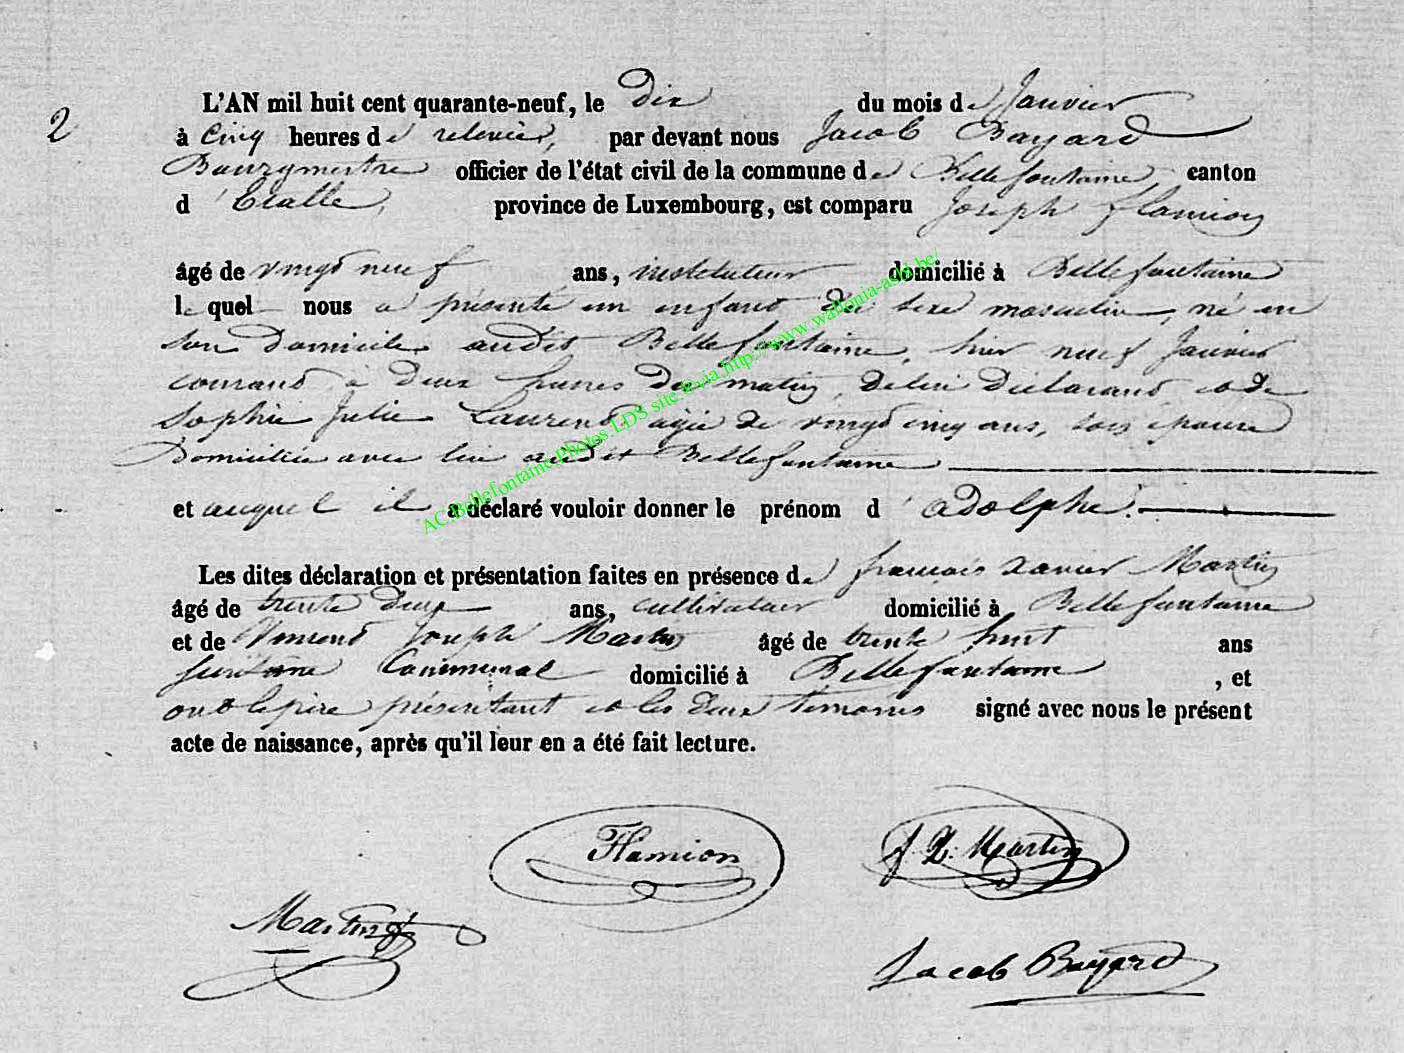 2
L'AN mil huit cent quarante-neuf, le dix du mois de Janvier
à cinq heures de relevée, par devant nous Jacob Bayard
Bourgmestre officier de l'état civil de la commune de Bellefontaine, canton
d'Etalle, province de Luxembourg, est comparu Joseph Flamion
âgé de vingt neuf ans, instituteur domicilié à Bellefontaine
le quel nous a présenté un enfant du sexe masculin, né en
son domicile audit Bellefontaine, hier neuf Janvier
courant à deux heures du matin, de lui déclarant, et de
Sophie Julie Laurent agée de vingt cinq ans, son épouse
Domiciliée avec lui audit Bellefontaine
et auquel il a déclaré vouloir donner le prénom d'adolphe.
Les dites déclaration et présentation faites en présence de françois Xavier Martin
âgé de trente deux ans, cultivateur domicilié à Bellefontaine
et de Vincent Joseph Martin âgé de trente huit ans
Communal domicilié à Bellefontaine, et
ont le père présentant et les deux témoins signé avec nous le présent
acte de naissance, après qu'il leur en a été fait lecture.
Flamion
f. X. Martin
Martin
Jacob Bayard
AC.Bellefontaine.Photos LDS site via http://www.wallonia-asbl.be/